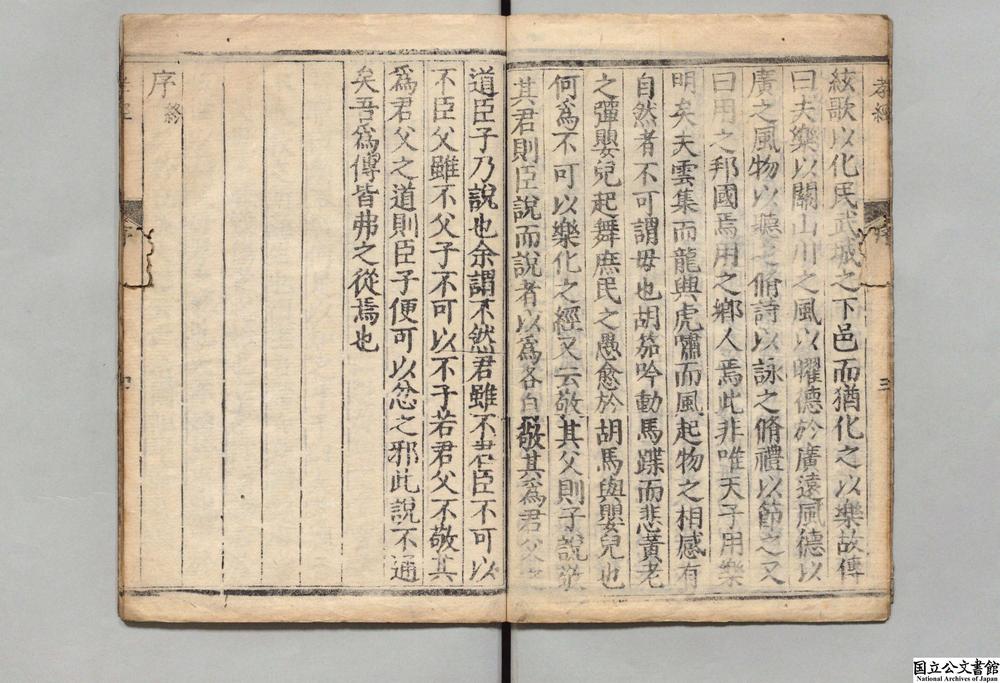 孝經 序 三
絃歌以化民武城之下邑而猶化之以樂故傳
曰夫樂以關山川之風以曜德於廣遠風德以
廣之風物以聽之脩詩以詠之脩禮以節之又
曰用之邦國焉用之鄉人焉此非唯天子用樂
明矣夫雲集而龍興虎嘯而風起物之相感有
自然者不可謂毋也胡笳吟動馬蹀而悲黃老
之彈嬰兒起舞庶民之愚愈於胡馬與嬰兒也
何爲不可以樂化之經又云敬其父則子說敬
其君則臣說而說者以爲各自敬其爲君父之
道臣子乃說也余謂不然君雖不君臣不可以
不臣父雖不父子不可以不子若君父不敬其
爲君父之道則臣子便可以忿之邪此說不通
矣吾爲傳皆弗之從焉也
序終
国立公文書館
National Archives of Japan